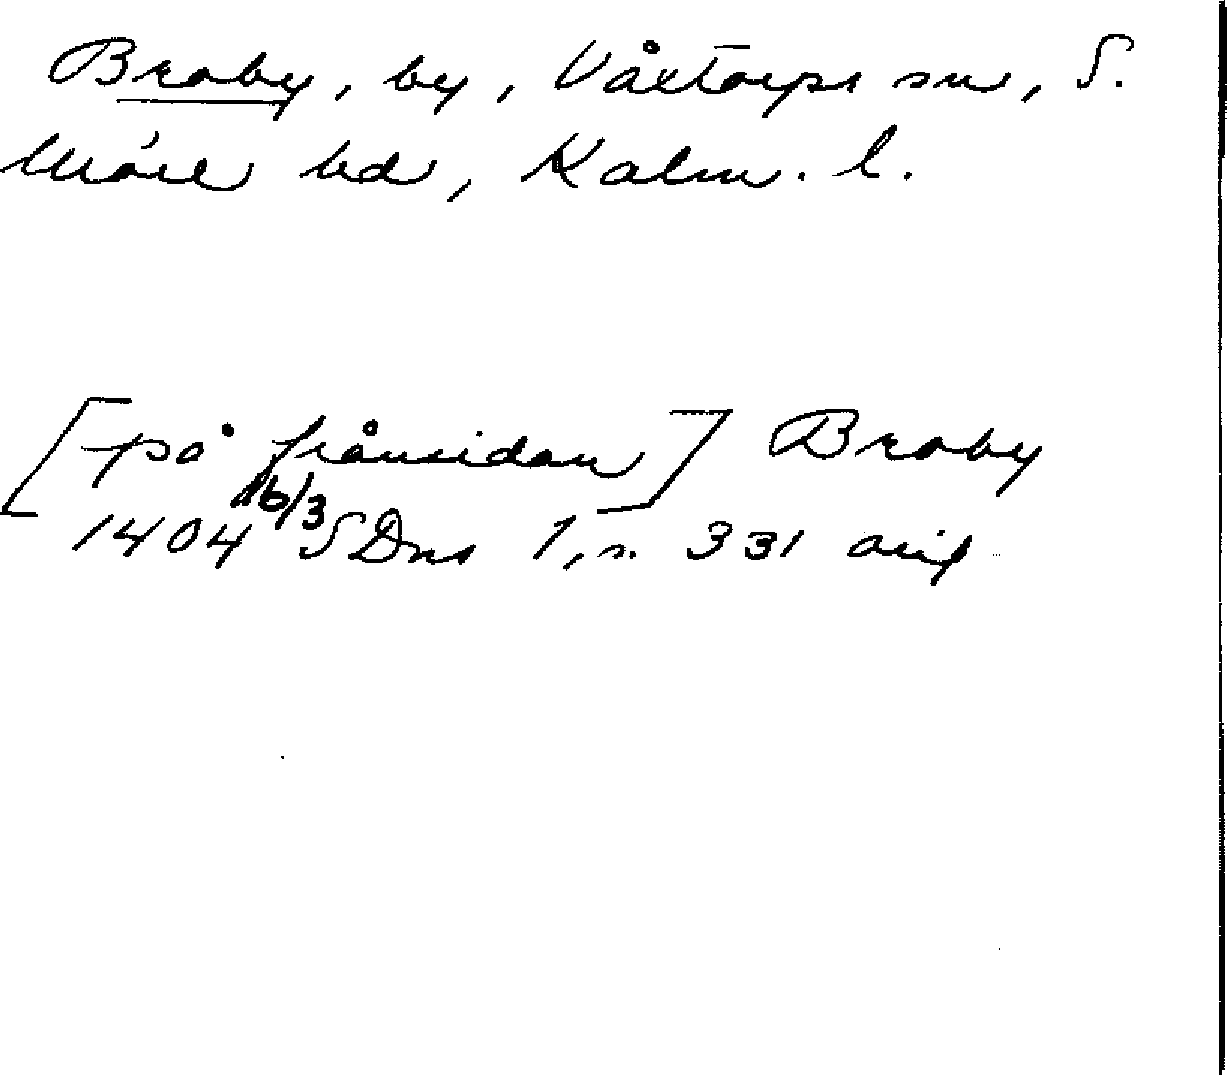 Broby, by, Våxtorps sn, S.
Möre hd, Kalm. l.
[på frånsidan] Broby
1404 16/3 SDns 1, s. 331 orig